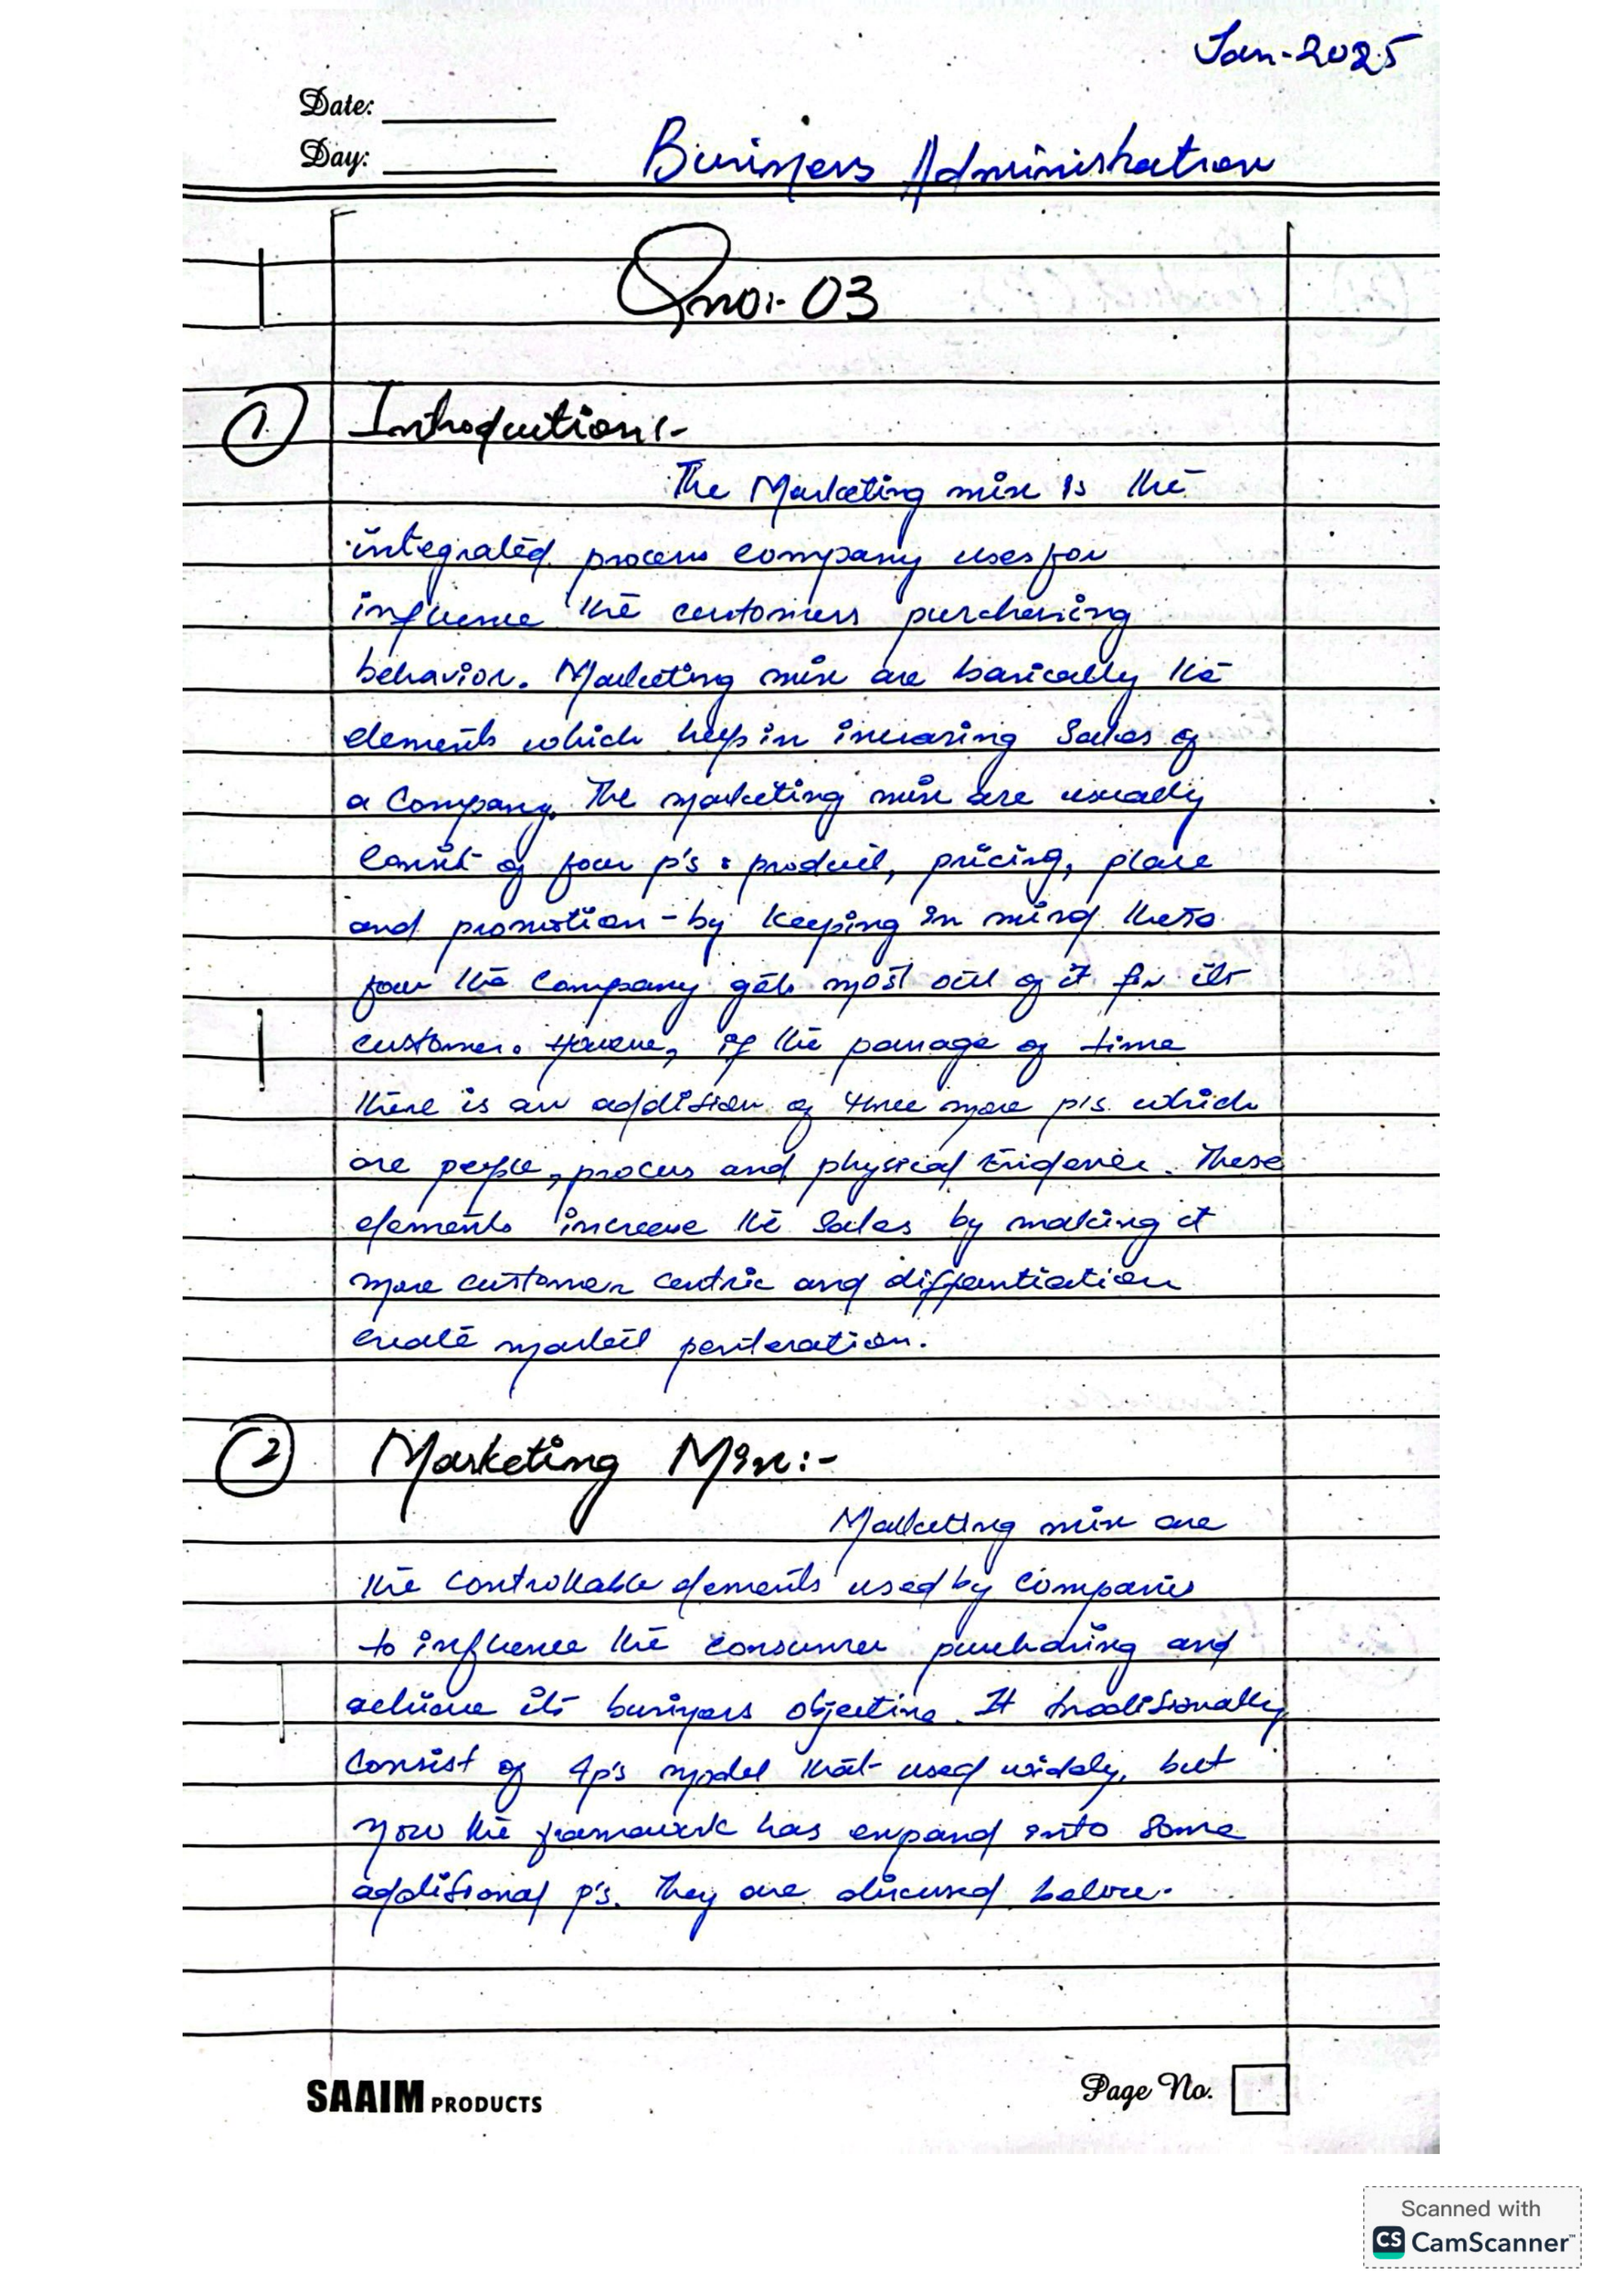 Jan-2025
Date:
Day:
Business Administration
Qno:- 03
1. Introduction:-
The Marketing mix is the
integrated process company uses for
influence the customers purchasing
behavior. Marketing mix are basically the
elements which help in increasing Sales of
a Company. The marketing mix are usually
Consist of four p's : product, pricing, place
and promotion - by keeping in mind these
four the Company gets most out of it for its
customer. However, if the passage of time
there is an addition of three more p's. which
are people, process and physical Evidence. These
elements increase the Sales by making it
more customer centric and differntiation
create market penteration.
2 Marketing Mix:-
Marketing mix are
the controllable elements used by Companies
to influence the consumer purchasing and
achieve its business objective. It traditionally
Consist of 4p's model that used widely, but
now the framework has expand into Some
additional p's. They are discussed below.
SAAIM PRODUCTS
Page No.
Scanned with
CS CamScanner